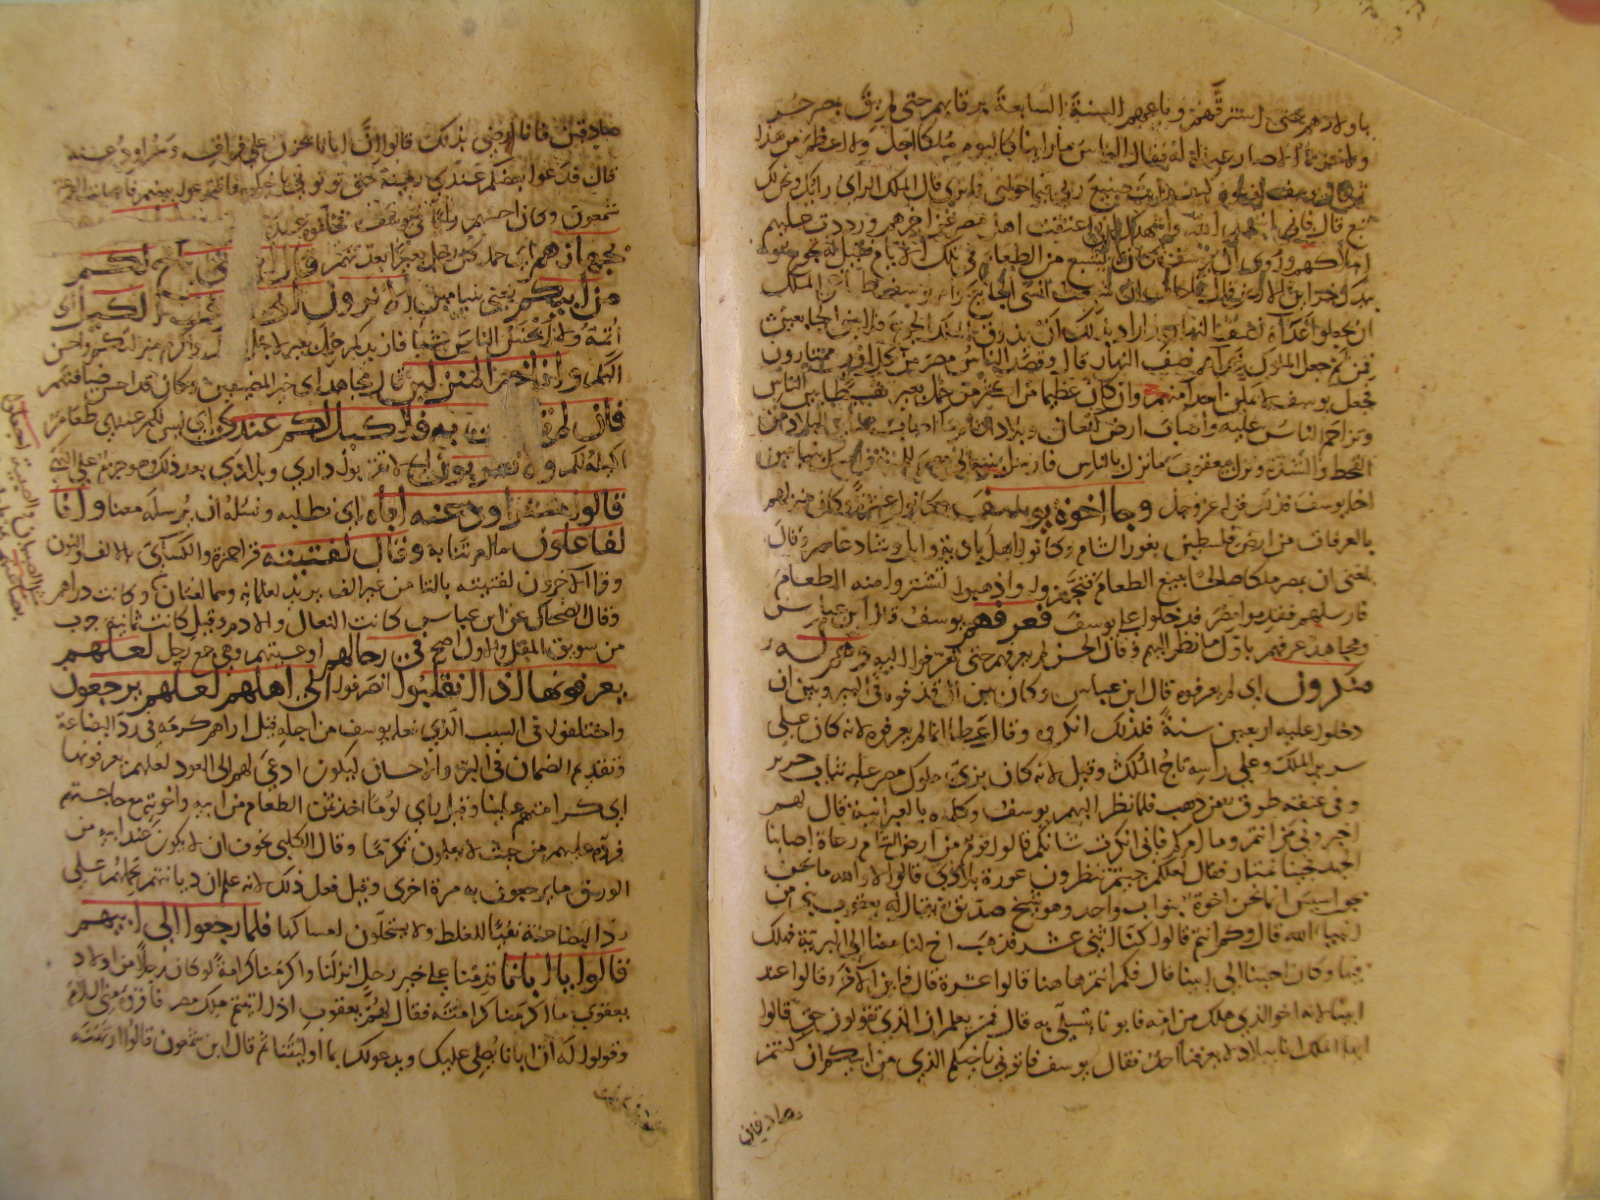 باولادهم حتى استرقهم وباعهم السنة السابعة برقابهم حتى لم يبق بمصر حر
ولا حرة الا صار عبدا له فقال الناس ما راينا كاليوم ملكا اجل ولا اعظم من هذا
ثم قال يوسف كيف رايت صنيع ربي فيما خولني فما ترى قال الملك الراى رايك ونحن لك
تبع قال فاني اشهد الله واشهدك اني اعتقت اهل مصر عن اخرهم ورددت عليهم
املاكهم وروى ان يوسف كان لا يشبع من الطعام في تلك الايام فقيل له تجوع
وبيدك خزاين الارض فقال اخاف ان شبعت انسى الجائع وامر يوسف طباخ الملك
ان يجعلوا غداه نصف النهار واراد بذلك ان يذوق الملك الجوع فلا ينسى الجايعين
فمن ثم جعل الملوك غداهم نصف النهار قال وقصد الناس مصر من كل اوب يمتارون
فجعل يوسف لا يمكن احدا منهم وان كان عظيما من اكثر من حمل بعير تقسيطا بين الناس
وتزاحم الناس عليه واصاب ارض كنعان وبلاد الشام ما اصاب سائر البلاد من
القحط والشدة ونزل بيعقوب ما نزل بالناس فارسل بنيه الى مصر للميرة وامسك بنيامين
اخا يوسف فذلك قوله عز وجل وجا اخوة يوسف وكانوا عشرة وكان منزلهم
بالعرفات من ارض فلسطين بغور الشام وكانوا اهل بادية وابل وشاء فدعاهم وقال
بلغني ان بمصر ملكا صالحا يبيع الطعام فتجهزوا واذهبوا لتشتروا منه الطعام
فارسلهم فقدموا مصر فدخلوا على يوسف فعرفهم يوسف قال ابن عباس
ومجاهد عرفهم باول ما نظر اليهم وقال الحسن لم يعرفهم حتى تعرفوا اليه وهم له
منكرون اي لم يعرفوه قال ابن عباس وكان بين ان قذفوه في البير وبين ان
دخلوا عليه اربعين سنة فلذلك انكروه وقال عطا انما لم يعرفوه لانه كان على
سرير الملك وعلى راسه تاج الملك وقيل لانه كان بزي ملوك مصر عليه ثياب حرير
وفي عنقه طوق من ذهب فلما نظر اليهم يوسف وكلموه بالعبرانية قال لهم
اخبروني من انتم وما امركم فاني انكرت شانكم قالوا قوم من ارض الشام رعاة اصابنا
الجهد فجينا نمتار فقال لعلكم جيتم تنظرون عورة بلادي قالوا لا والله ما نحن
جواسيس انما نحن اخوة بنو اب واحد وهو شيخ صديق يقال له يعقوب نبي من
انبيا الله قال وكم انتم قالوا كنا اثني عشر فذهب اخ لنا معنا الى البرية فهلك
فيها وكان احبنا الى ابينا قال فكم انتم هاهنا قالوا عشرة قال فاين الاخر قالوا عند
ابينا لانه اخو الذي هلك من امه فابونا يتسلى به قال فمن يعلم ان الذي تقولون حق قالوا
ايها الملك انا ببلاد لا يعرفنا احد فقال يوسف فاتوني باخيكم الذي من ابيكم ان كنتم
صادقين
صادقين فانا ارضى بذلك قالوا ان ابانا يحزن على فراقه وسنراود عنه
قال فدعوا بعضكم عندي رهينة حتى توتوني باخيكم فاقترعوا بينهم فاصابت القرعة
شمعون وكان احسنهم رايا في يوسف فخلفوه عنده
بجهازهم اي حمل كل رجل بعيرا بعدتهم قال ايتوني باخ لكم
من ابيكم يعني بنيامين الا ترون اني اوفي الكيل اي
اتمه ولا ابخس الناس شيئا فازيدكم حمل بعير لاجل واكرم منزلتكم واحسن
اليكم وانا خير المنزلين قال مجاهد اي خير المضيفين وكان قد احسن ضيافتهم
فان لم تاتوني به فلا كيل لكم عندي اي ليس لكم عندي طعام
اكيله لكم ولا تقربون اي لا تقربوا داري وبلادي بعد ذلك وهو جزم على النهي
قالوا سنراود عنه اباه اي نطلبه ونسئله ان يرسله معنا وانا
لفاعلون ما امرتنا به وقال لفتيته قرا حمزة والكسائي بالالف والنون
وقرا الاخرون لفتيته بالتا من غير الف يريد لغلمانه وهما لغتان وكانت دراهم
وقال الضحاك عن ابن عباس كانت النعال والادم وقيل كانت ثمانية جرب
من سويق المقل والاول اصح في رحالهم اوعيتهم وهي جمع رحل لعلهم
يعرفونها اذا انقلبوا انصرفوا الى اهلهم لعلهم يرجعون
واختلفوا في السبب الذي فعله يوسف من اجله قيل اراهم كرمه في رد البضاعة
وتقديم الضمان في البر والاحسان ليكون ادعى لهم الى العود لعلهم يعرفونها
اي كرامتهم علينا وقيل راى لوما اخذ ثمن الطعام من ابيه واخوته مع حاجتهم
فرده عليهم من حيث لا يعلمون تكرما وقال الكلبي تخوف ان لا يكون عند ابيه من
الورق ما يرجعون به مرة اخرى وقيل فعل ذلك لانه علم ان ديانتهم تحملهم على
رد البضاعة نفيا للغلط ولا يستحلون امساكها فلما رجعوا الى ابيهم
قالوا يا ابانا قدمنا على خير رجل انزلنا واكرمنا كرامة لو كان رجلا من اولاد
يعقوب ما اكرمنا كرامته فقال لهم يعقوب اذا اتيتم ملك مصر فاقروه مني السلام
وقولوا له ان ابانا يصلي عليك ويدعو لك بما اوليتنا ثم قال اين شمعون قالوا ارتهنه